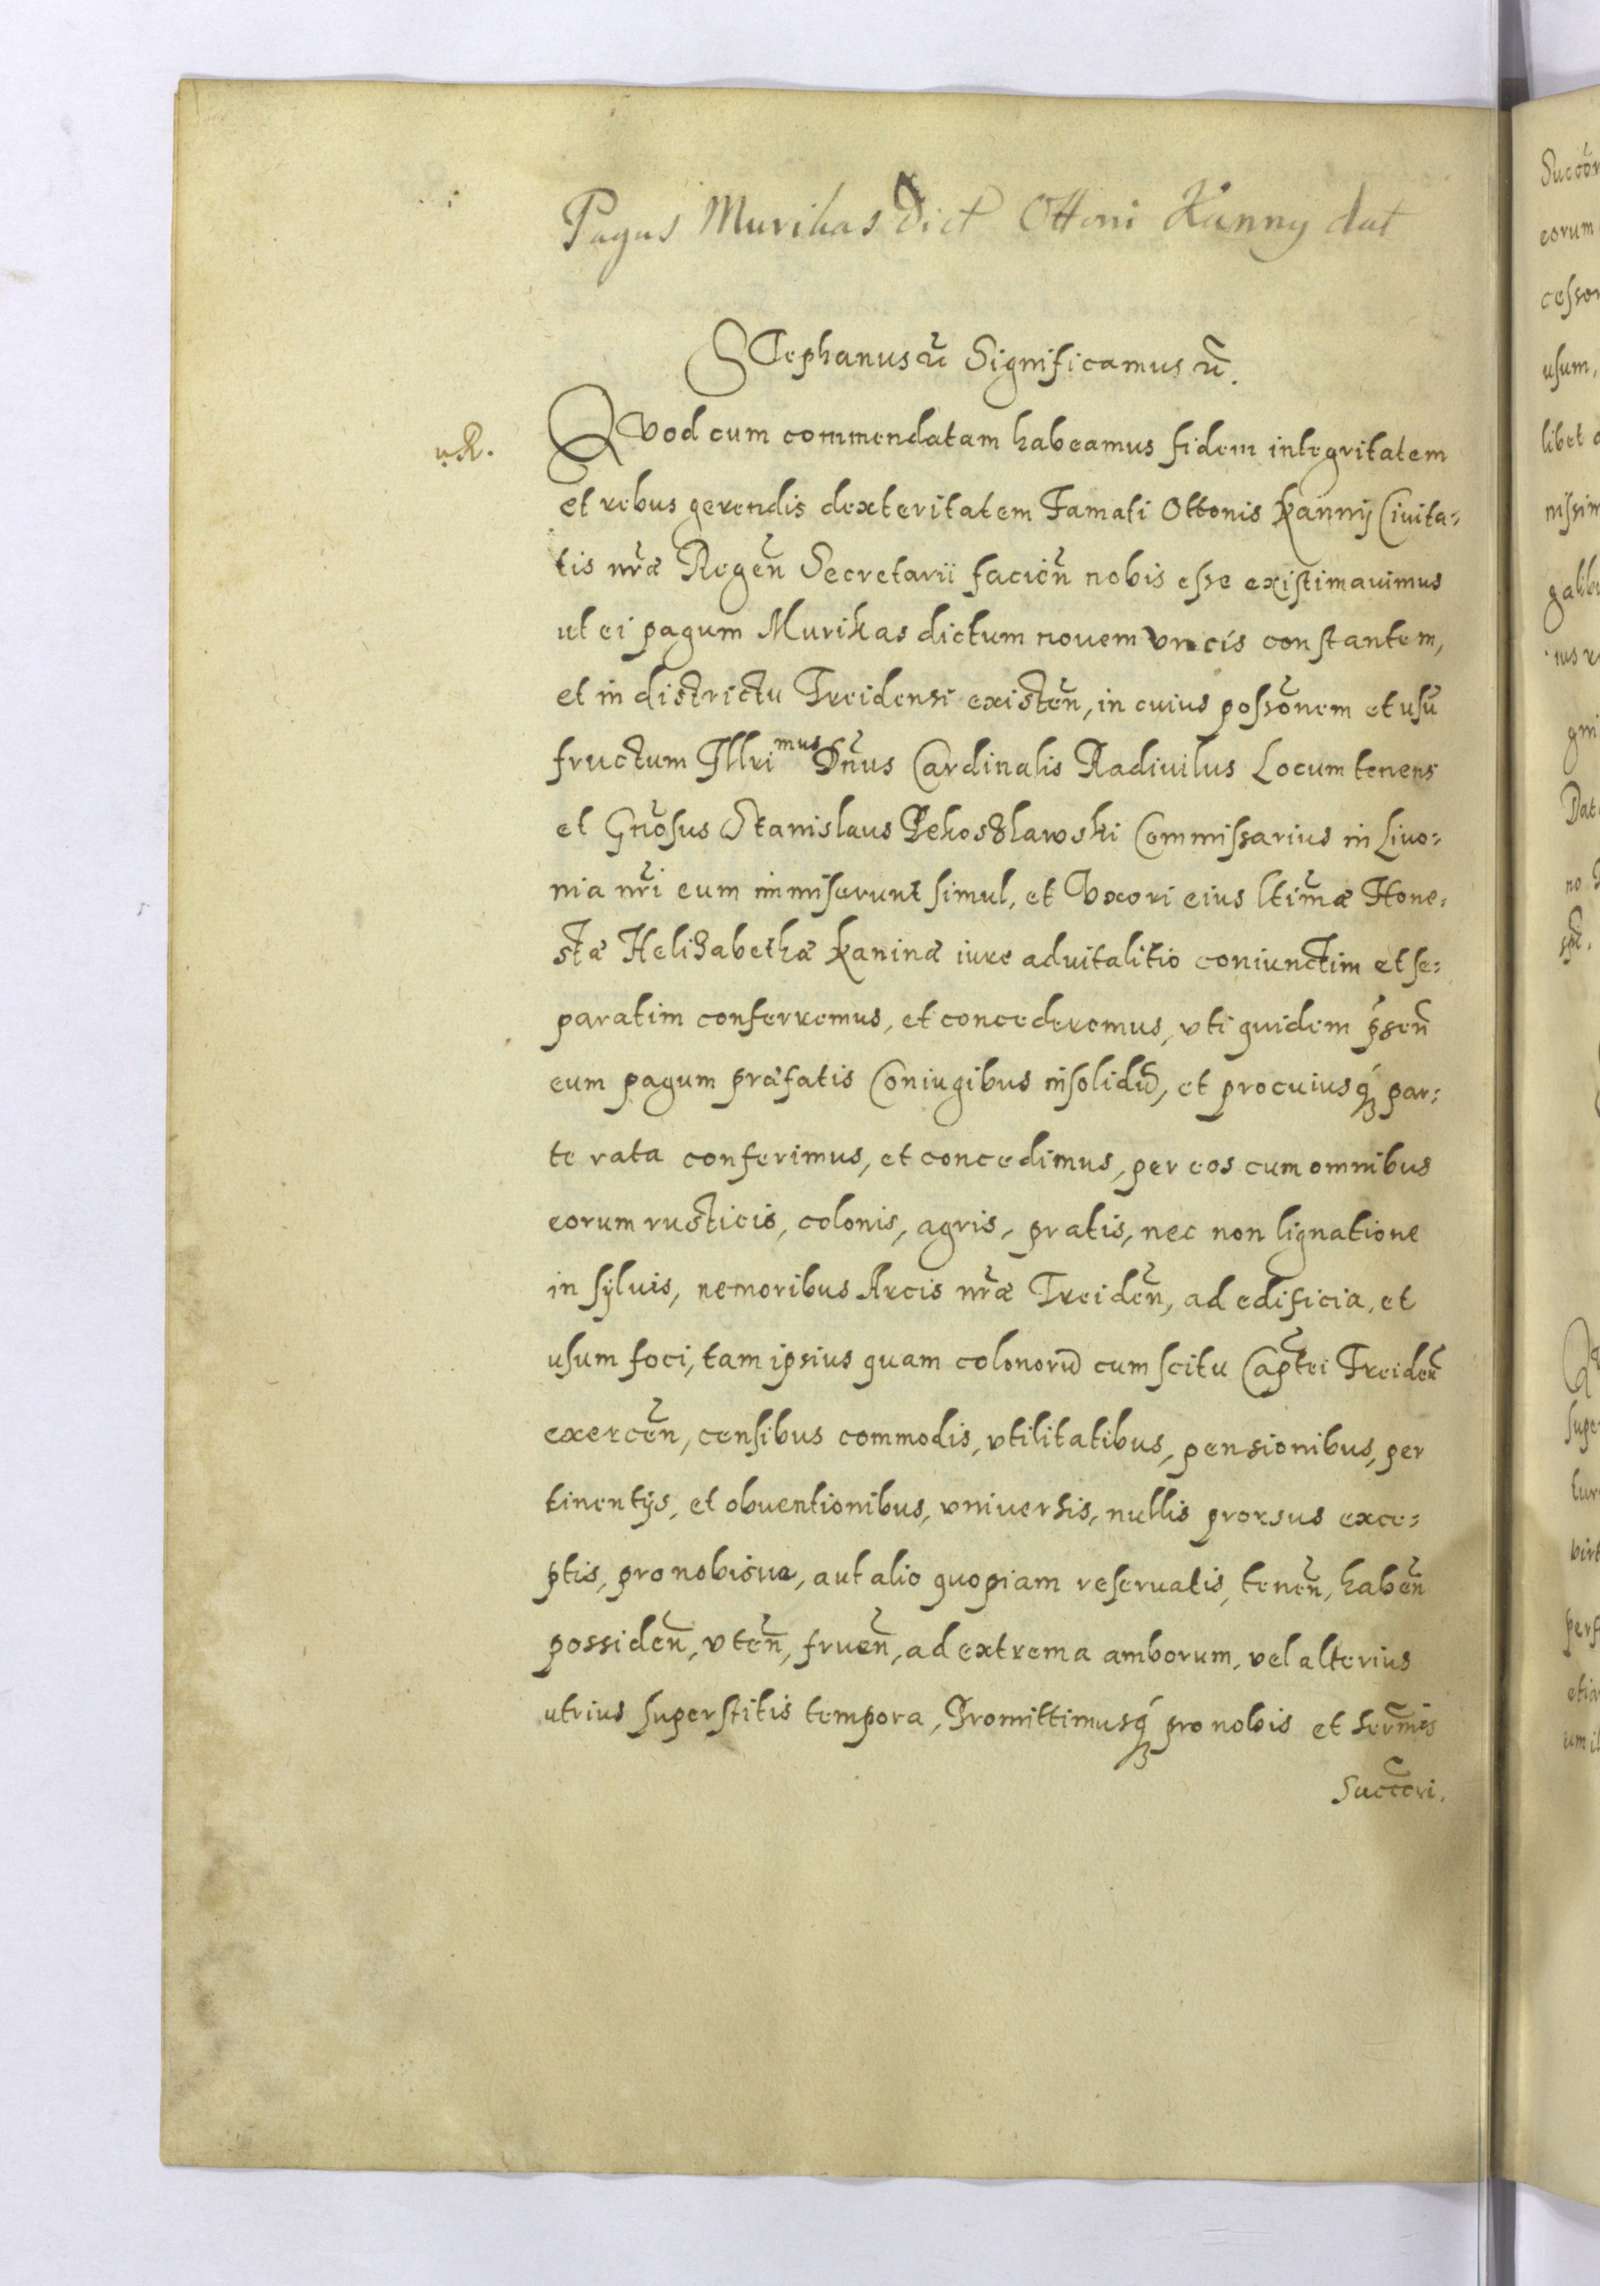 Pagus Murikas Dict Ottoni Kanny dat
STephanus ēt Significamus ēt.
QVod cum commendatam habeamus fidem integritatem
et rebus gerendis dexteritatem Famati Ottonis Kannij Ciuita=
tis nr̃æ Regeñ Secretarii facień nobis esse existimauimus
ut ei pagum Murikas dictum nouem vncis constantem,
et in districtu Treidensi existeñ, in cuius possõnem et usũ
fructum Illri^mus Dñus Cardinalis Radiuilus Locum tenens
et Gnõsus Stanislaus Pekoslawski Commissarius in Liuo=
nia nr̃i eum immiserunt simul, et Vxori eius ltimæ̃ Hone=
stæ Helizabethæ Kaninæ iure aduitalitio coniunctim et se=
paratim conferremus, et concederemus, vti quidem p̃señ
eum pagum præfatis Coniugibus insolidũ, et procuiusq́ꝫ par=
te rata conferimus, et concedimus, per eos cum omnibus
eorum rusticis, colonis, agris, pratis, nec non lignatione
in syluis, nemoribus Arcis nr̃æ Treideñ, ad edificia, et
usum foci, tam ipsius quam colonorũ cum scitu Cap̃tei Treideñ
exerceñ, censibus commodis, vtilitatibus, pensionibus, per
tinentijs, et obuentionibus, vniuersis, nullis prorsus exce=
ptis, pro nobisue, aut alio quopiam reseruatis, teneñ, habeñ
possideñ, vteñ, frueñ, ad extrema amborum, vel alterius
utrius superstitis tempora, Promittimusq́ꝫ pro nobis et Serm̃is
Succc̃ori.